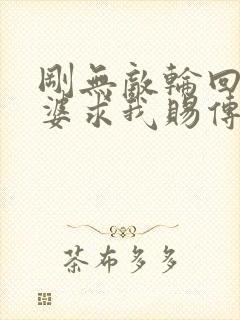 剛無敵輪回
婆求我賜傳
茶布多多